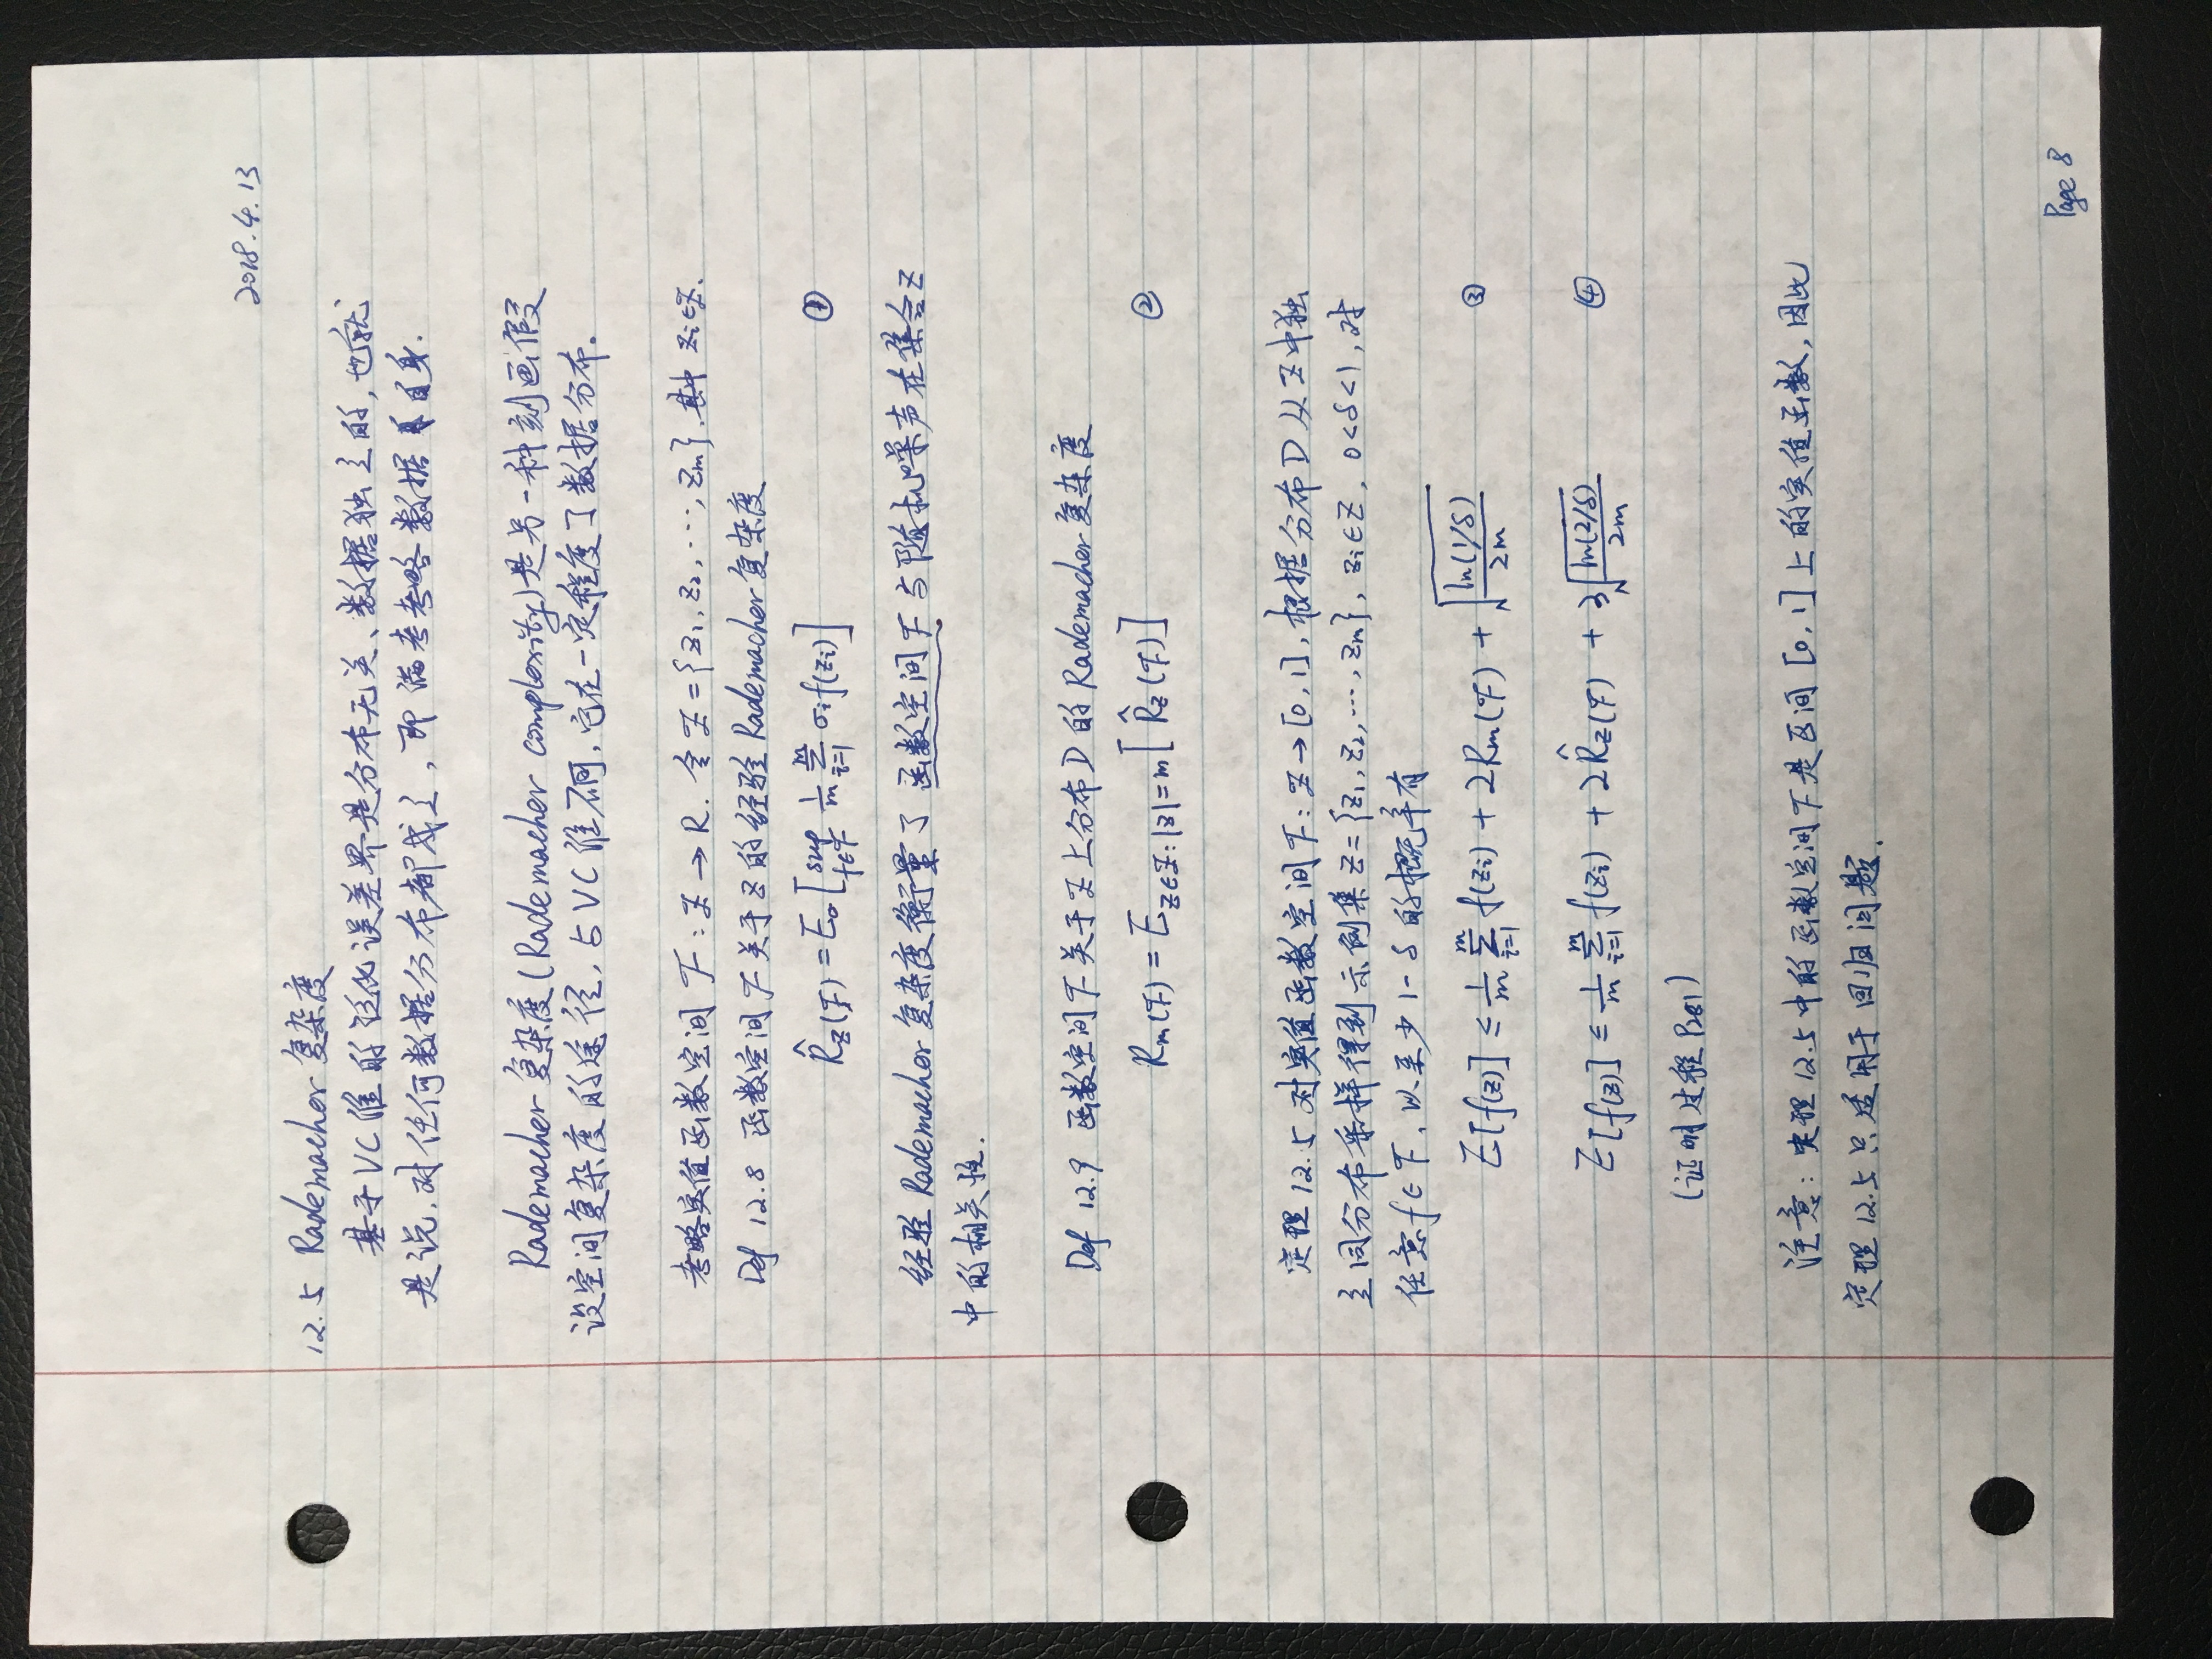 2018.4.13
12.5 Rademacher 复杂度
基于VC维的泛化误差界是分布无关、数据独立的, 也就
是说, 对任何数据分布都成立, 即 考虑数据自身.
Rademacher 复杂度(Rademacher complexity)是另一种刻画假
设空间复杂度的途径, 与VC维不同, 它在一定程度了数据分布。
考略实值函数空间 F : Z → R. 令 Z = {z₁, z₂, ⋯, zₘ}, 其中 zᵢ∈Z.
Def 12.8 函数空间 F 关于 Z 的经验 Rademacher 复杂度
R̂_Z(F) = E_σ [ sup_{f∈F} 1/m Σ_{i=1}^{m} σᵢ f(zᵢ) ] ①
经验 Rademacher 复杂度衡量了函数空间 F 与随机噪声在集合 Z
中的相关性.
Def 12.9 函数空间 F 关于 Z 上分布 D 的 Rademacher 复杂度
Rₘ(F) = E_{Z∈Z:|Z|=m} [ R̂_Z(F) ] ②
定理 12.5 对实值函数空间 F : Z → [0, 1], 根据分布 D 从 Z 中独
立同分布采样得到示例集 Z = {z₁, z₂, ⋯, zₘ}, zᵢ∈Z, 0<δ<1, 对
任意 f∈F, 以至少 1-δ 的概率有
E[f(z)] ≤ 1/m Σ_{i=1}^{m} f(zᵢ) + 2Rₘ(F) + √(ln(1/δ)/2m) ③
E[f(z)] ≤ 1/m Σ_{i=1}^{m} f(zᵢ) + 2R̂_Z(F) + 3√(ln(2/δ)/2m) ④
(证明过程 P281)
注意: 定理 12.5 中的函数空间 F 是区间 [0, 1] 上的实值函数, 因此
定理 12.5 只适用于回归问题.
Page 8